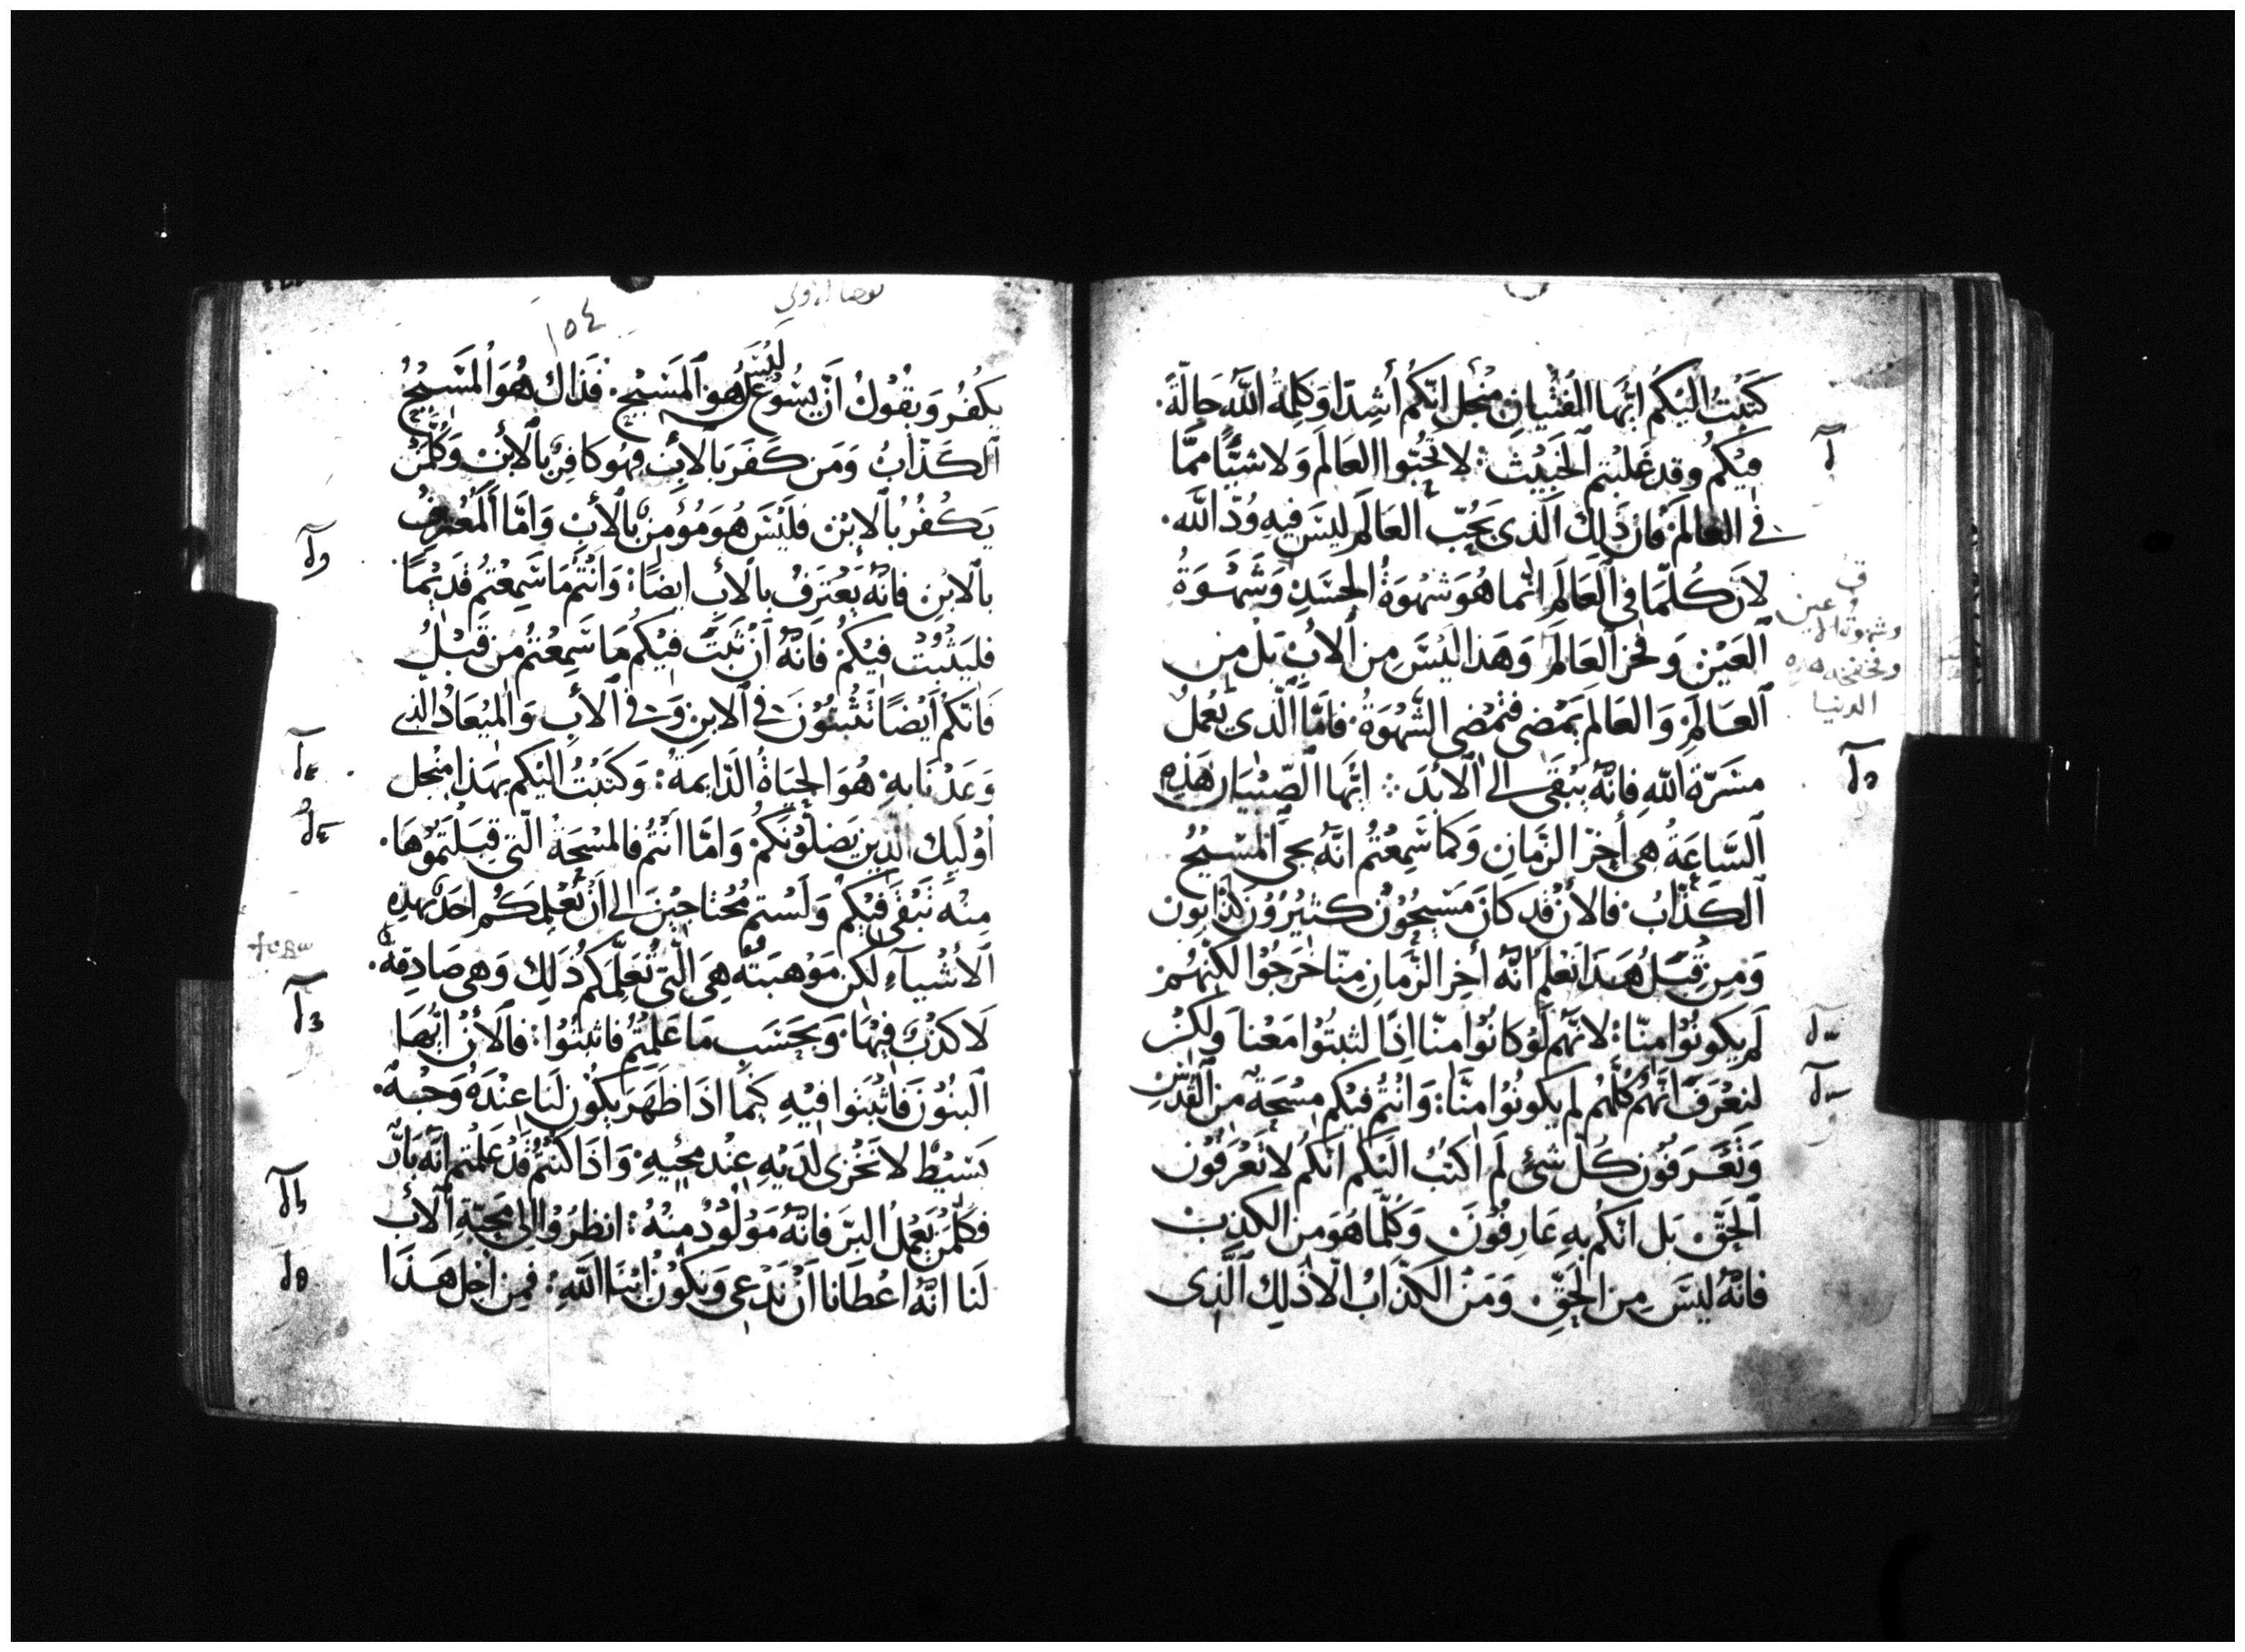 كَتَبْتُ اليَكُم ايُّهَا الفتْيان منْجل انّكُم أشِدّا وَكَلِمَةُ اللَّه حَالّة.
فيكُم وقد غَلبْتم الخَبيْث: لا تحُبّوا العَالَمَ وَلا شيًّا ممَّا
في العالم. فان ذَلِك الَّذى يَحُبّ العَالَم ليسَ فيهِ وُدّ اللَّه.
لأنّ كُلّمَا في العَالَمِ انّما هُوَ شهْوَةُ الجَسَدِ وَشَهْوَةُ
العَيْن وَفخر العَالَم وَهَذا ليْسَ مِن الأبْ بَلْ من
العَالَمِ وَالعَالَم يَمْضى فتمْضى الشّهْوَةُ. فامَّا الَّذي يَعْملُ
مسَرّة اللَّهِ فانّهُ يَبْقى الى الأبْدَ: ايُّهَا الصّبْيَان هَذِهِ
السَّاعَةُ هى أخِرُ الزّمَانِ وَكما سَمِعْتُم انّهُ يجى المَسْيحُ
الكَذّابُ. فالأن قد كَانَ مَسْيِحُون كثيْرُوْن كذّابُون
وَمِن قِبَلُ هَذا نَعْلَم انّهُ أخِر الزّمَانِ منّا خَرَجُوا لكنهُمْ
لم يَكونُوْا منّا: لانّهُم لَوْ كانُوْا منّا اذًا لثبتُوْا مَعْنا وَلكنْ
لنعْرَفَ انّهُم كُلّهُم لم يكونُوْا منّا: وَانْتُم فيْكم مسْحَةٌ من القُدّس
وَتَعْرَفُون كُلّ شئ لَم اكتبُ اليْكم انّكم لا تَعْرَفُون
الحَقّ بَل انّكُم بهِ عَارِفُوْنَ وَكُلّمَا هُوَ من الكذِبْ
فانّهُ ليْسَ مِن الحَقِّ. وَمَن الكذّابُ الاّ ذَلِك الَّذى
وشهوة العين
الدنيا
١٥٤
يكْفُر وَيقُوْلُ انّ يسُوْعَ ليْسَ هُو المَسْيح. فذَاكَ هُوَ المَسْيحُ
الكَذّابُ وَمَن كَفرَ بالأبْ فهُو كافِرٌ بالأبْن وَكُلّمَنْ
يَكْفُرُ بالابْن فليْسَ هُوَ مُؤمنٌ بالأبْ وَامَّا المعْترفُ
بالابْن فانّهُ يَعْترَفُ بالأبْ ايضًا: وَانْتُم مَا سَمِعْتمُ قَديمًا
فليَثْبُت فيْكُم فَانّهُ أنْ ثَبَتَ فيْكم مَا سَمِعْتُم من قَبْلُ
فَانّكُم ايْضًا تَثْبتُوْنَ في الابن وَفي الأبِ وَالميْعَاد الذي
وَعَدْنا بهِ هُوَ الحَيَاةُ الدَايمَةُ: وَكَتَبْتُ اليْكُم بهَذا منْجل
اوْليِك الّذين يَضلّوْنكُم وَامَّا انتُم فالمسْحَةُ الّتى قبلتمُوْهَا.
منْهُ تَبْقى فيْكُم وَلَسْتم مُحْتاجيْن الى انْ يُعْلِمكُم احَدٌ بهَذِهِ
الأشْيآء لكن مَوْهبَتُهُ هِىَ الّتى تُعَلّمكُم ذَلِك وَهى صَادِقةٌ.
لَا كذْبَ فيْهَا. وَبحَسَب مَا عَلّمتْكُم فاثبتُوْا: فالأنْ ايُّهَا
البنُوْن فَاثبتُوا فيْهِ كَيْما اذَا ظَهَرَ يكُوْن لَنَا عنْدَهُ وَجْهٌ.
بَسيْطٌ لا نَخْزى لدَيْهِ عنْد مَجْيهِ. وَاذَا كنْتُم قَدْ عَلمْتم انّهُ بَارّ
فكلّمَنْ يَعْمَلُ البرَّ فانّهُ مَوْلُوْدٌ منْهُ: انظرُوْا الى مَحبّةِ الأبْ
لَنا انّهُ اعْطَانا انْ نَدْعى وَنكُوْن ابْنَا اللَّهِ: فمِن اجْل هَذَا